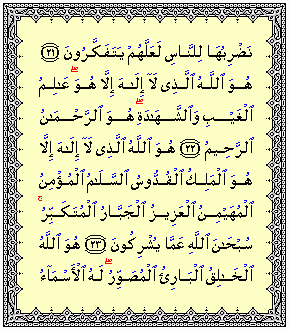 نَضْرِبُهَا لِلنَّاسِ لَعَلَّهُمْ يَتَفَكَّرُونَ ﴿٢١﴾
هُوَ ٱللَّهُ ٱلَّذِى لَآ إِلَـٰهَ إِلَّا هُوَ ۖ عَـٰلِمُ
ٱلْغَيْبِ وَٱلشَّهَـٰدَةِ ۖ هُوَ ٱلرَّحْمَـٰنُ
ٱلرَّحِيمُ ﴿٢٢﴾ هُوَ ٱللَّهُ ٱلَّذِى لَآ إِلَـٰهَ إِلَّا
هُوَ ٱلْمَلِكُ ٱلْقُدُّوسُ ٱلسَّلَـٰمُ ٱلْمُؤْمِنُ
ٱلْمُهَيْمِنُ ٱلْعَزِيزُ ٱلْجَبَّارُ ٱلْمُتَكَبِّرُ ۚ
سُبْحَـٰنَ ٱللَّهِ عَمَّا يُشْرِكُونَ ﴿٢٣﴾ هُوَ ٱللَّهُ
ٱلْخَـٰلِقُ ٱلْبَارِئُ ٱلْمُصَوِّرُ ۖ لَهُ ٱلْأَسْمَآءُ